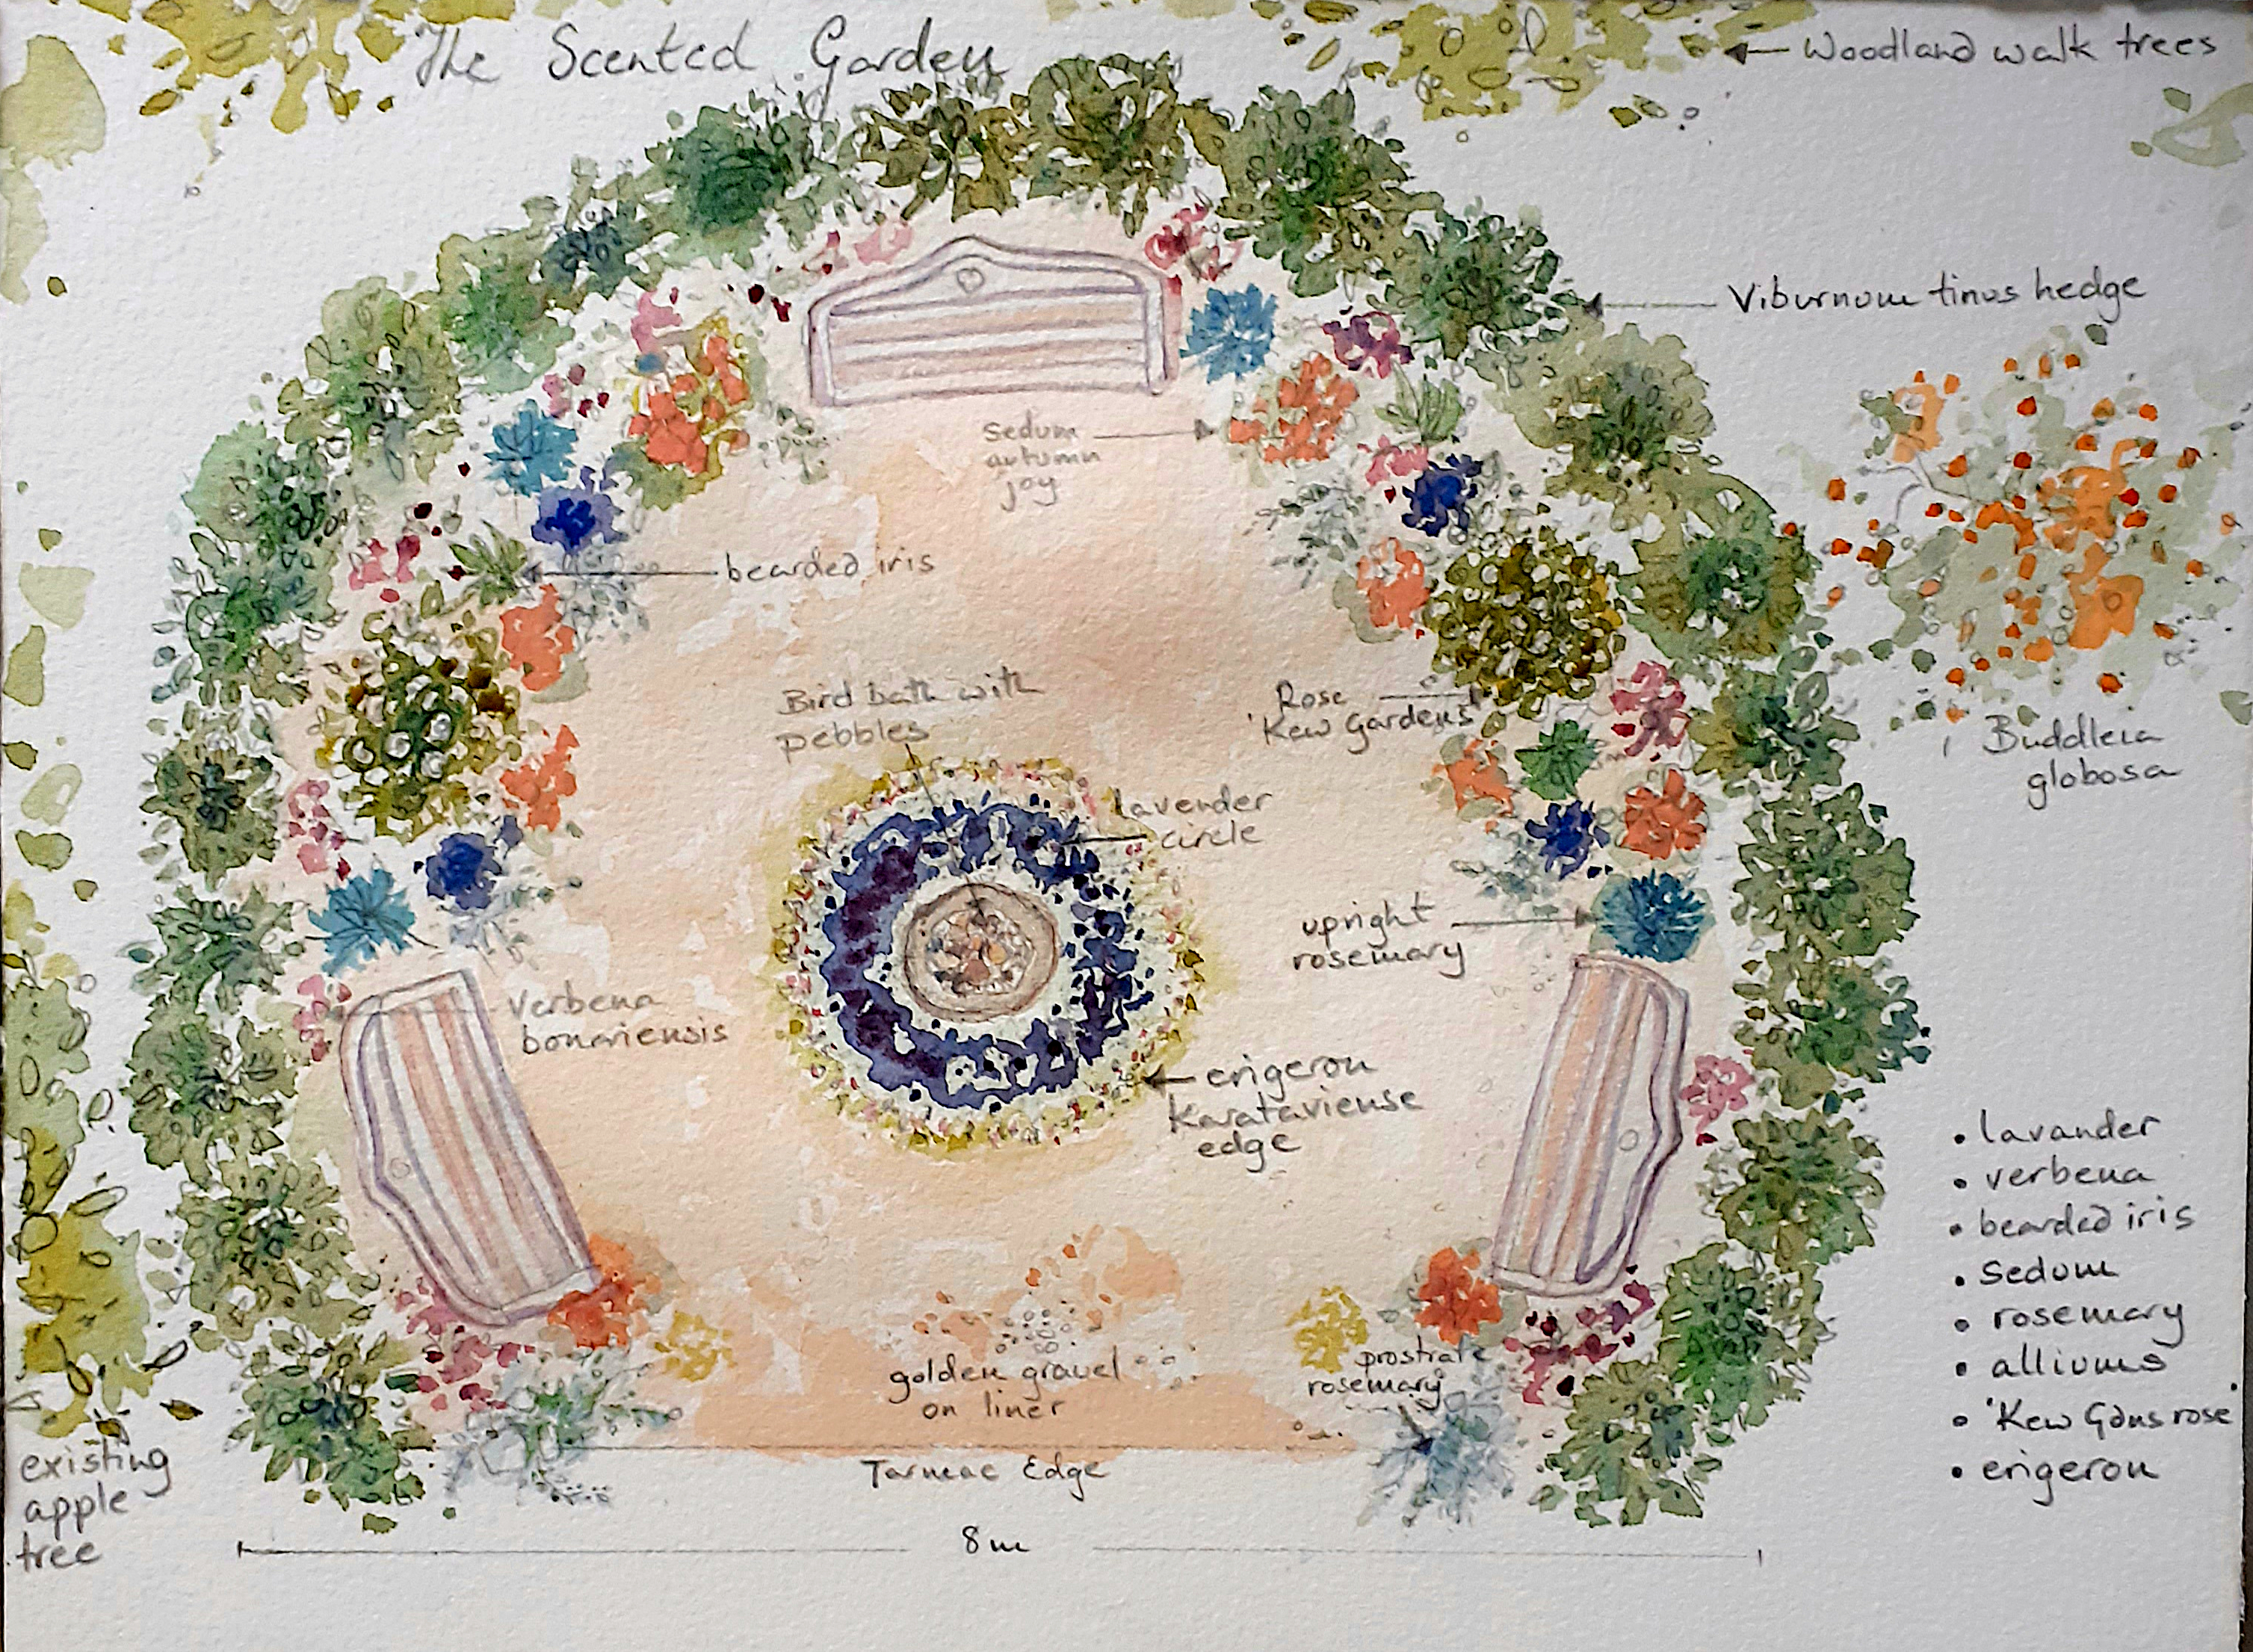 The Scented Garden
Woodland walk trees
Viburnum tinus hedge
Sedum
autumn
joy
bearded iris
Bird bath with
pebbles
Rose
'Kew Gardens'
Buddleia
globosa
lavender
circle
upright
rosemary
Verbena
bonariensis
erigeron
Karataviense
edge
• lavander
• verbena
• bearded iris
• Sedum
• rosemary
• alliums
• 'Kew Gdns rose'
• erigeron
golden gravel
on liner
prostrate
rosemary
Tarmac Edge
existing
apple
tree
8m